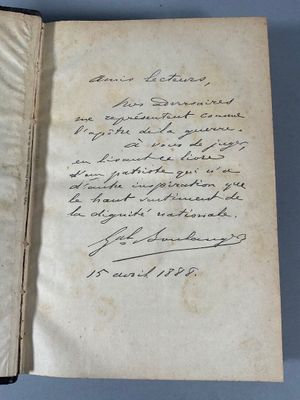 Amis lecteurs,
Nos Adversaires
me représentent comme
l'apôtre de la guerre.
à vous de juger,
en lisant ce livre
d'un patriote qui n'a
d'autre inspiration que
le haut sentiment de
la dignité nationale.
Gal Boulanger
15 avril 1888.